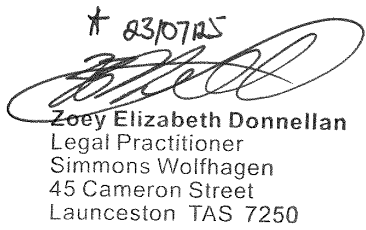 * 23/07/25
Zoey Elizabeth Donnellan
Legal Practitioner
Simmons Wolfhagen
45 Cameron Street
Launceston TAS 7250